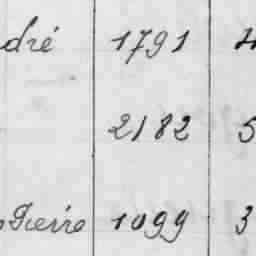 dré 1791 4
2182 5
Pierre 1099 3